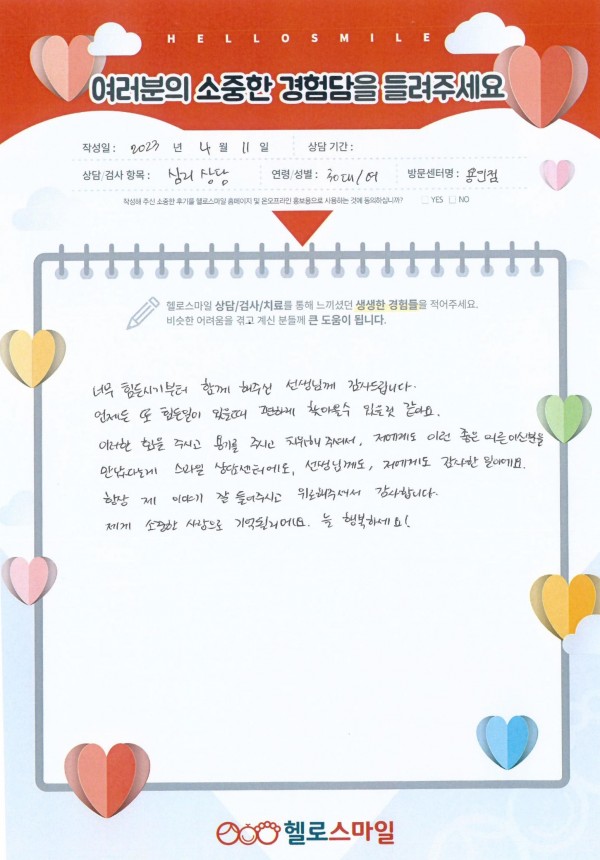 HELLOSMILE
여러분의 소중한 경험담을 들려주세요
작성일 : 2023 년 4 월 11 일 상담 기간 :
상담/검사 항목 : 심리 상담 연령/성별 : 30대/여 방문센터명 : 용인점
작성해 주신 소중한 후기를 헬로스마일 홈페이지 및 온오프라인 홍보용으로 사용하는 것에 동의하십니까? YES NO
헬로스마일 상담/검사/치료를 통해 느끼셨던 생생한 경험들을 적어주세요.
비슷한 어려움을 겪고 계신 분들께 큰 도움이 됩니다.
너무 힘든시기부터 함께 해주신 선생님께 감사드립니다.
언제든 또 힘든일이 있을때 편하게 찾아올수 있을것 같아요.
이러한 힘을 주시고 용기를 주시고 치유해 주셔서, 저에게도 이런 좋은 어른이신분을
만났다는게 스마일 상담센터에도, 선생님께도, 저에게도 감사한 일이에요.
항상 제 이야기 잘 들어주시고 위로해주셔서 감사합니다.
제게 소중한 사람으로 기억될거에요. 늘 행복하세요!
헬로스마일